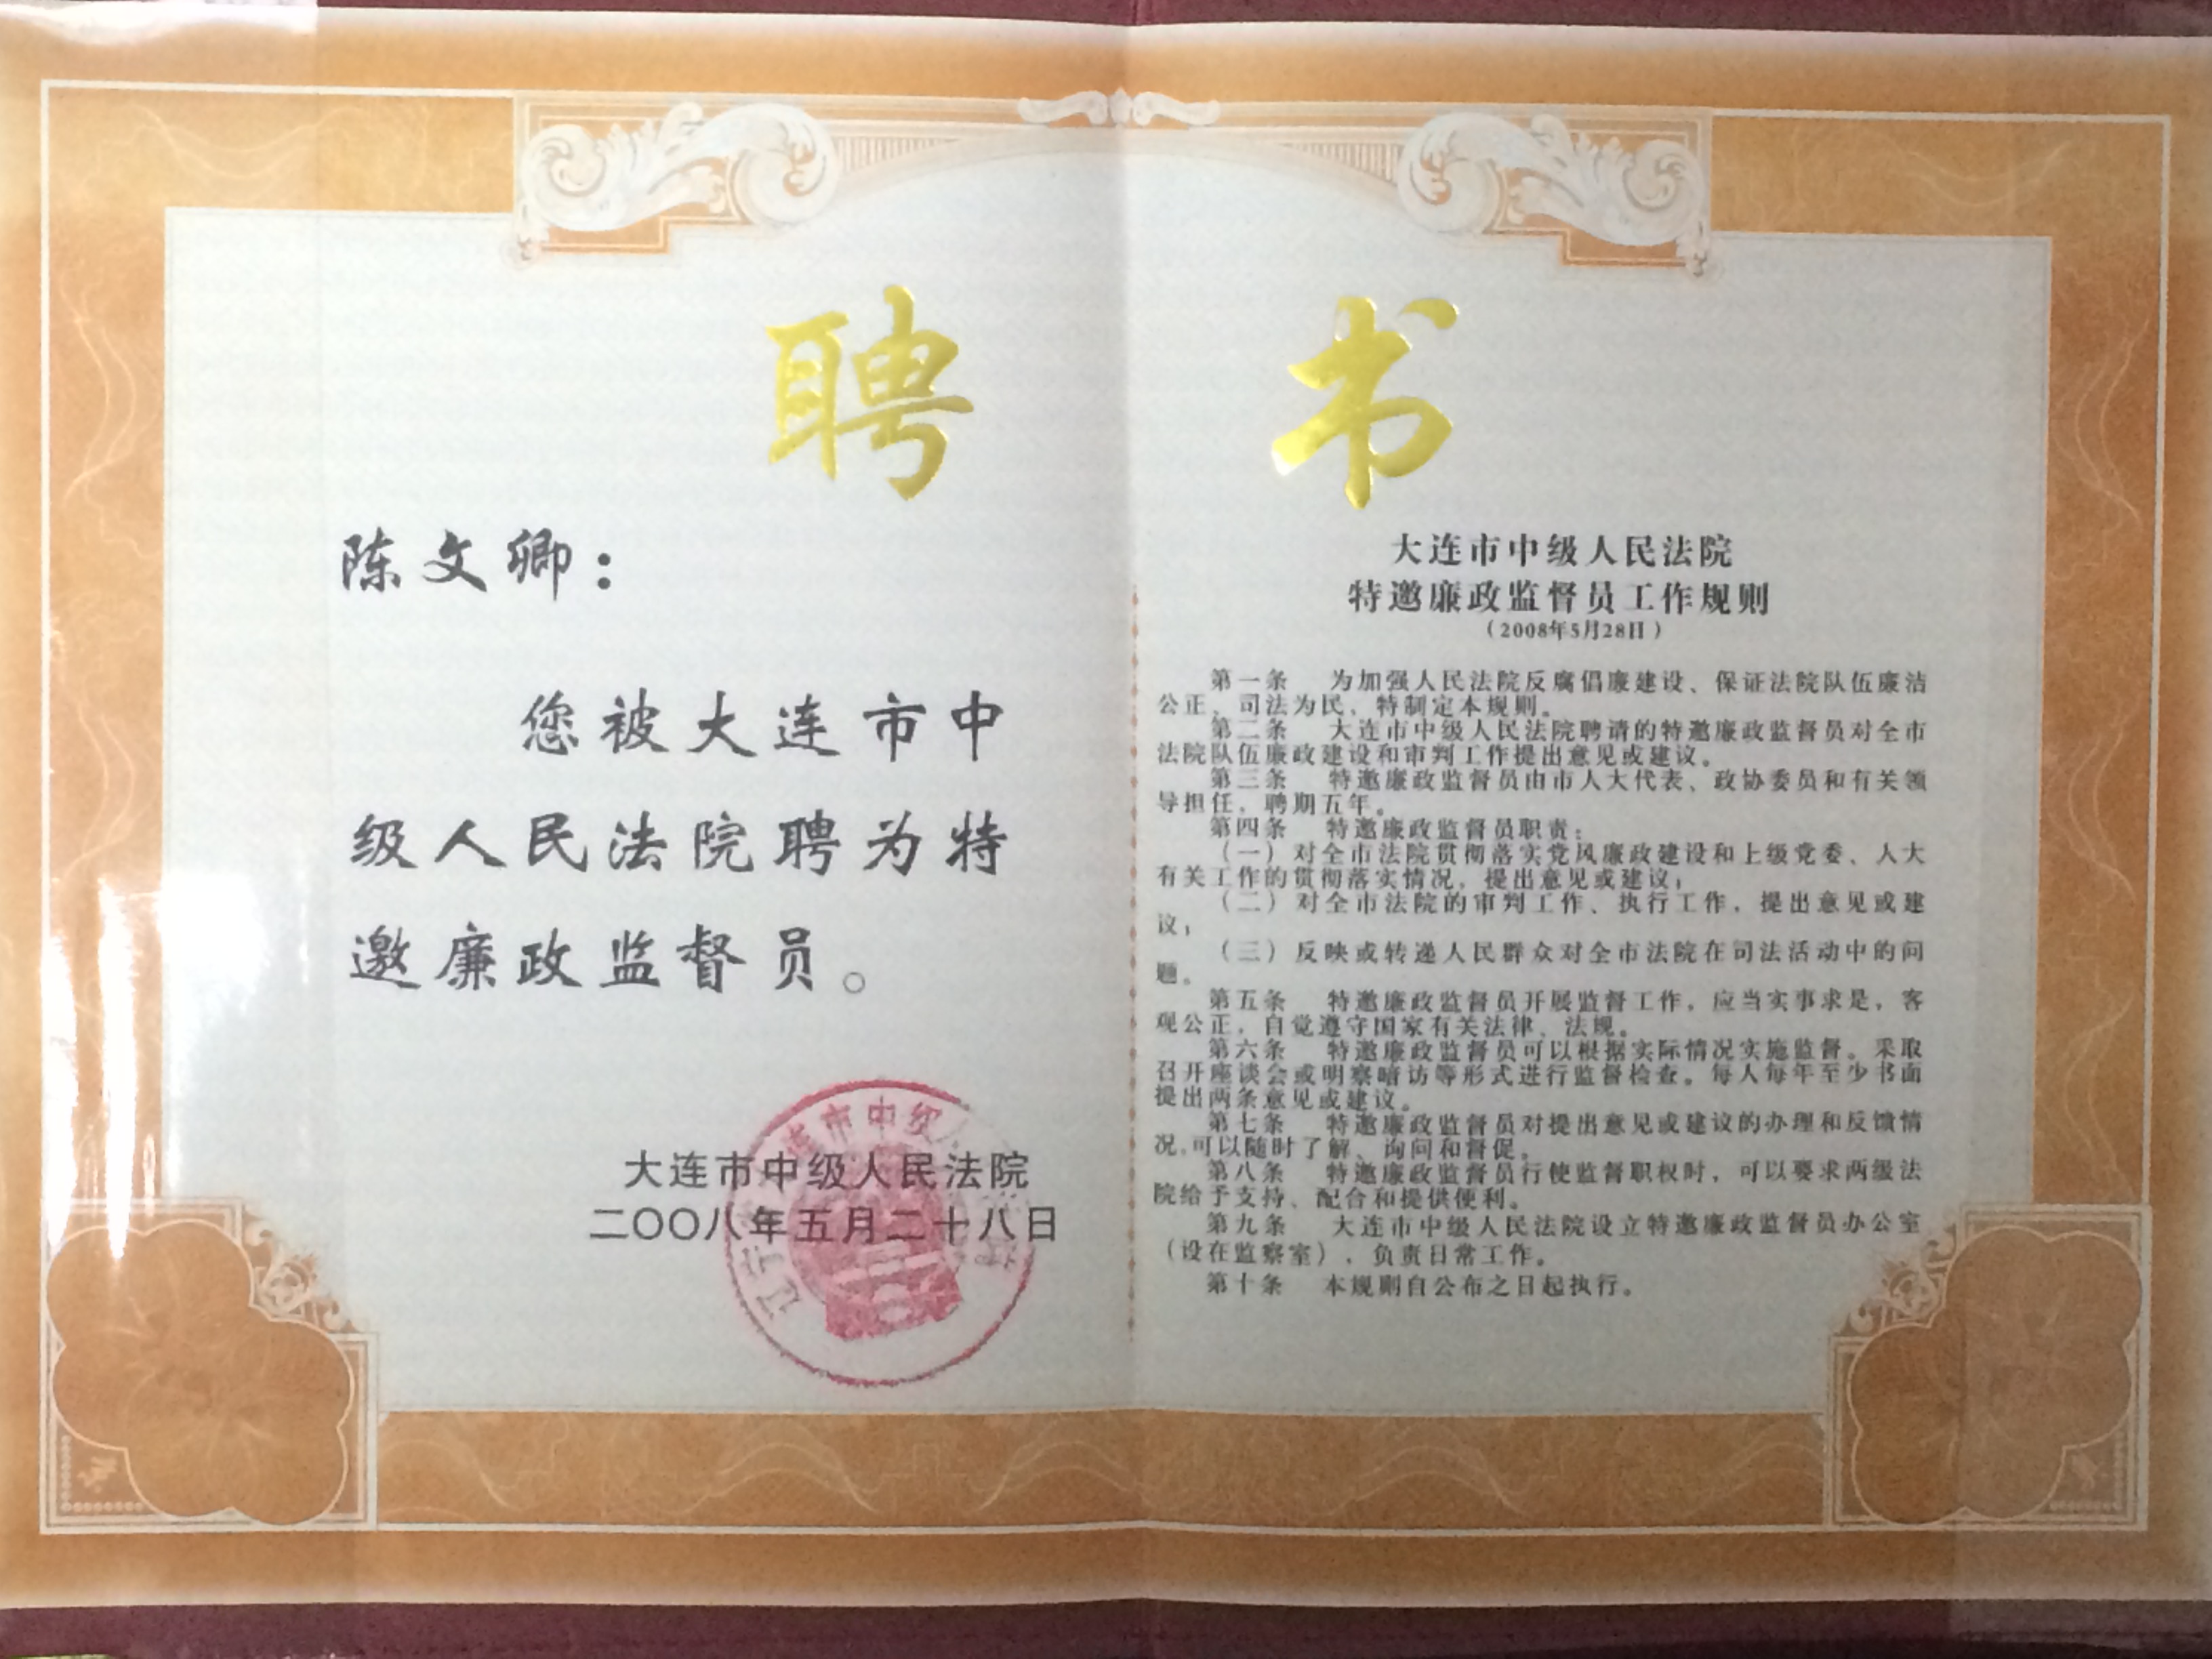 聘书
陈文卿：
您被大连市中
级人民法院聘为特
邀廉政监督员。
大连市中级人民法院
二〇〇八年五月二十八日
大连市中级人民法院
特邀廉政监督员工作规则
（2008年5月28日）
第一条 为加强人民法院反腐倡廉建设、保证法院队伍廉洁
公正、司法为民，特制定本规则。
第二条 大连市中级人民法院聘请的特邀廉政监督员对全市
法院队伍廉政建设和审判工作提出意见或建议。
第三条 特邀廉政监督员由市人大代表、政协委员和有关领
导担任，聘期五年。
第四条 特邀廉政监督员职责：
（一）对全市法院贯彻落实党风廉政建设和上级党委、人大
有关工作的贯彻落实情况，提出意见或建议；
（二）对全市法院的审判工作、执行工作，提出意见或建
议；
（三）反映或转递人民群众对全市法院在司法活动中的问
题。
第五条 特邀廉政监督员开展监督工作，应当实事求是，客
观公正，自觉遵守国家有关法律、法规。
第六条 特邀廉政监督员可以根据实际情况实施监督。采取
召开座谈会或明察暗访等形式进行监督检查。每人每年至少书面
提出两条意见或建议。
第七条 特邀廉政监督员对提出意见或建议的办理和反馈情
况，可以随时了解、询问和督促。
第八条 特邀廉政监督员行使监督职权时，可以要求两级法
院给予支持、配合和提供便利。
第九条 大连市中级人民法院设立特邀廉政监督员办公室
（设在监察室），负责日常工作。
第十条 本规则自公布之日起执行。